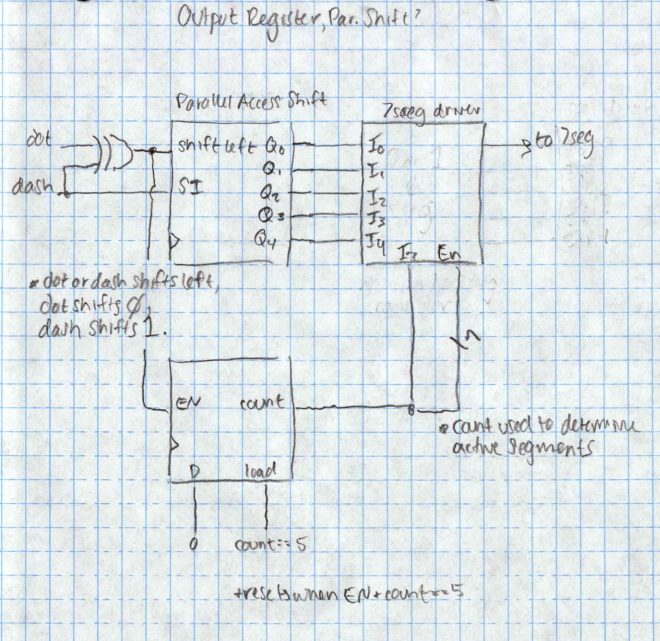 Output Register, Par. Shift?
Parallel Access Shift
7seeg driver
dot
dash
shift left
SI
Q0
Q1
Q2
Q3
Q4
I0
I1
I2
I3
I4
En
to 7seg
dot or dash shifts left,
dot shifts 0,
dash shifts 1.
EN
count
D
load
0
count==5
count used to determine
active segments
resets when EN + count==5